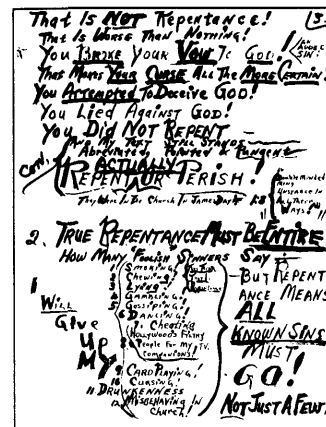 That Is NOT Repentance!
That Is Worse Than Nothing!
You BROKE Your VOW To GOD!
That Makes YOUR CURSE ALL THE MORE CERTAIN!
You ATTEMPTED To Deceive GOD!
You Lied Against GOD!
You Did NOT REPENT —
And My Text Still Stands
Abreviated Pointed & Pungent
ACTUALLY
REPENT OR PERISH!
They Were In The Church In James Day
1:8
Double Minded
Man
Unstable In
All Their
Ways
2. TRUE REPENTANCE MUST BE ENTIRE
How Many "Foolish" Sinners Say
I
Will
Give
Up
My
1 Smoking!
2 Chewing!
3 Lying!
4 Gambling!
5 Gossiping!
6 Dancing!
7. Cheating
8 Hollywoods Filthy
People For My T.V.
Companions!
9 Card Playing!
10 Cursing!
11 Drunkenness
12 Misbehaving In
Church!
— But Repent
ance Means
ALL
Known Sins
Must
GO!
Not Just A Few!